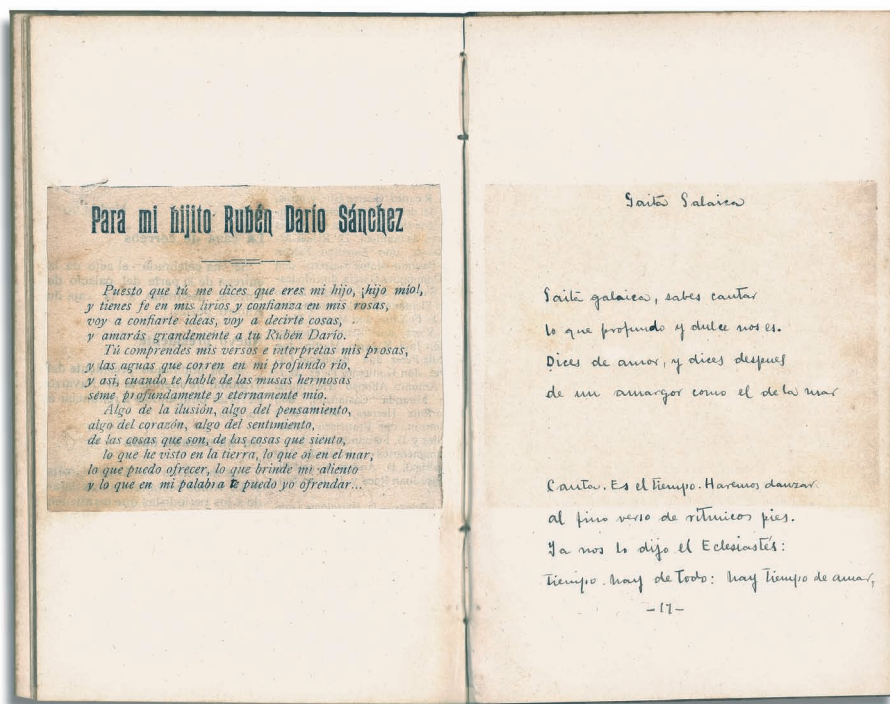 Para mi hijito Rubén Darío Sánchez
Puesto que tú me dices que eres mi hijo, ¡hijo mío!,
y tienes fe en mis lirios y confianza en mis rosas,
voy a confiarte ideas, voy a decirte cosas,
y amarás grandemente a tu Rubén Darío.
Tú comprendes mis versos e interpretas mis prosas,
y las aguas que corren en mi profundo río,
y así, cuando te hable de las musas hermosas
séme profundamente y eternamente mío.
Algo de la ilusión, algo del pensamiento,
algo del corazón, algo del sentimiento,
de las cosas que son, de las cosas que siento,
lo que he visto en la tierra, lo que oí en el mar,
lo que puedo ofrecer, lo que brinde mi aliento
y lo que en mi palabra te puedo yo ofrendar...
Gaita Galaica
Gaita galaica, sabes cantar
lo que profundo y dulce nos es.
Dices de amor, y dices despues
de un amargor como el de la mar
Canta. Es el tiempo. Haremos danzar
al fino verso de rítmicos pies.
Ya nos lo dijo el Eclesiastés:
Tiempo hay de Todo: hay tiempo de amar,
-17-